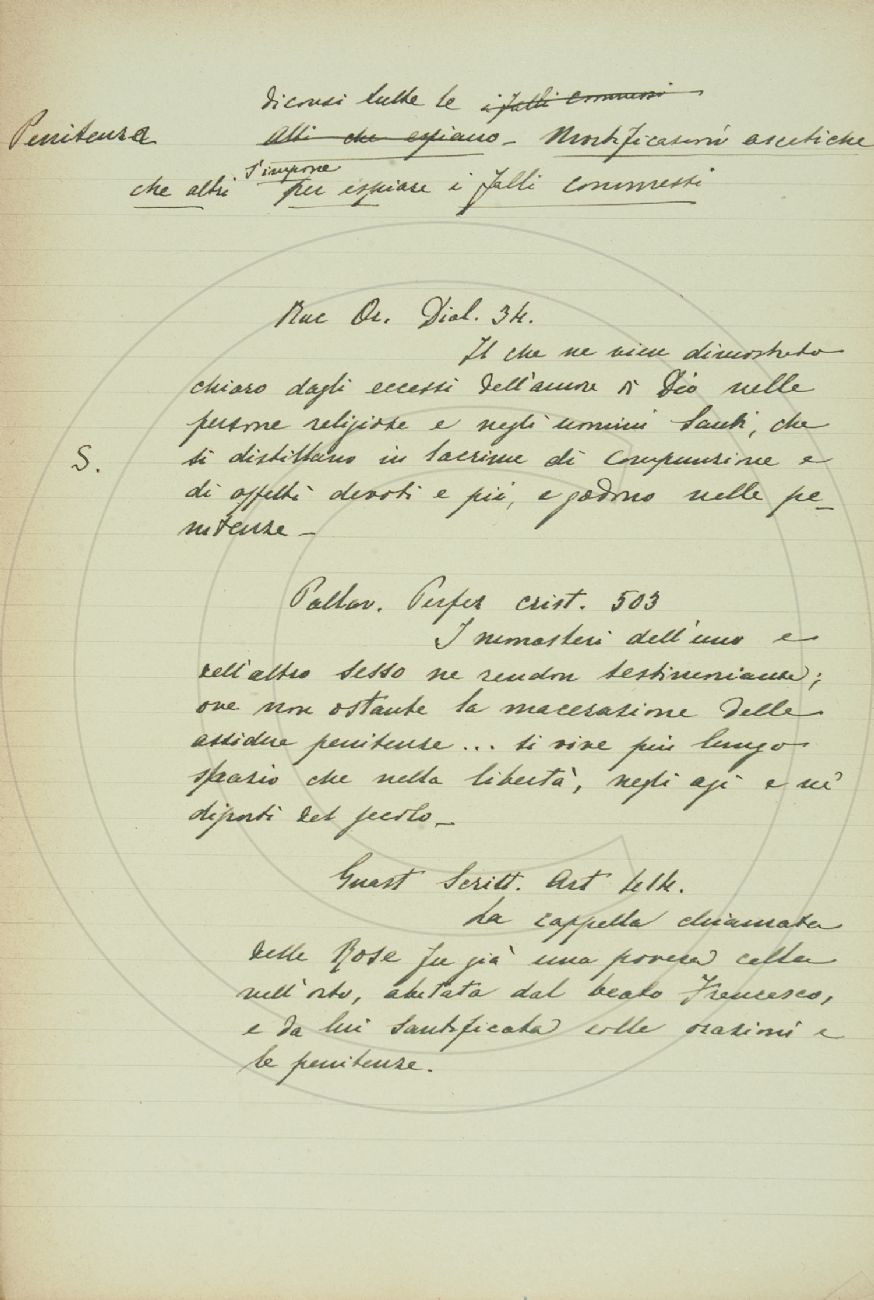 diconsi tutte le i falli commessi
Penitenza Atti che espiano - Mortificazioni ascetiche
s'impone
che altri per espiare i falli commessi
Ruc Or. Dial. 34.
Il che ne vien dimostrato
chiaro dagli eccessi dell'amore di Dio nelle
persone religiose e negli uomini Santi, che
S.
si distillano in lacrime di compunzione e
di affetti devoti e pii, e godono nelle pe-
nitenze -
Pallav. Perfez crist. 503
I monasteri dell'uno e
dell'altro sesso ne rendon testimonianza;
ove non ostante la macerazione delle
assidue penitenze... si vive più lungo
spazio che nella libertà, negli agi e ne'
diporti del secolo -
Guast Scritt. Art 414.
La cappella chiamata
delle Rose fu già una povera cella
nell'orto, abitata dal beato Francesco,
e da lui santificata colle orazioni e
le penitenze.